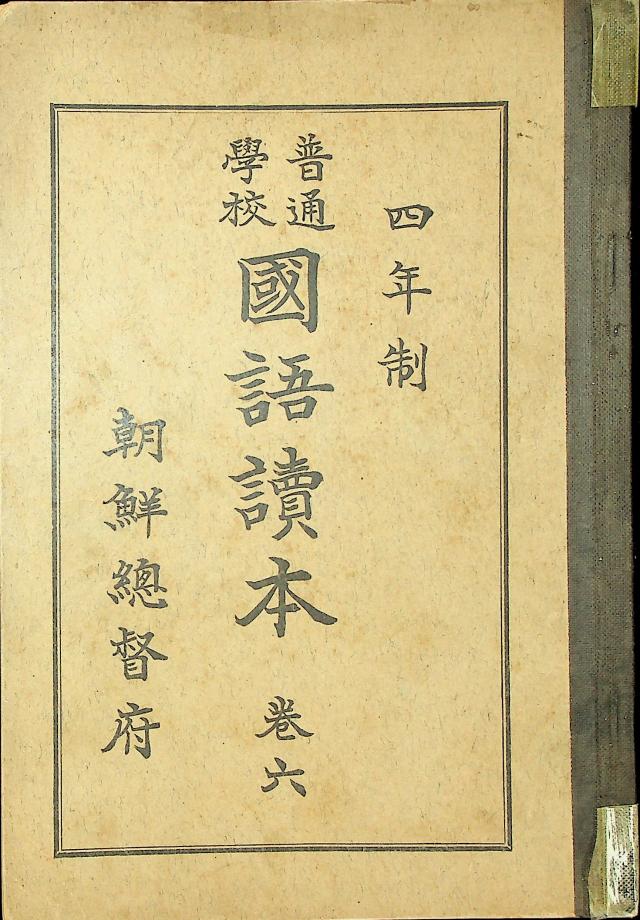 四年制
普通
學校
國語讀本 卷六
朝鮮總督府